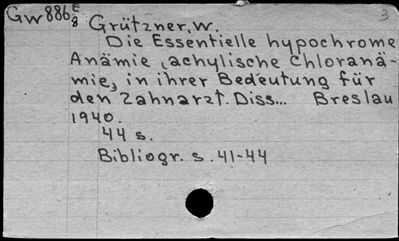 Gw886 E/8 3
Grützner, W.
Die Essentielle hypochrome
Anämie, achylische Chloranä-
mie, in ihrer Bedeutung für
den Zahnarzt. Diss... Breslau
1940.
44 s.
Bibliogr. s. 41-44